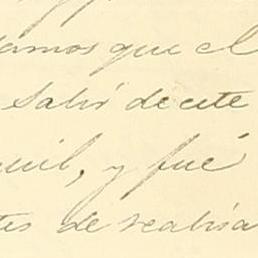 tamos que el
Salió de este
quil, y fué
tes de realisa